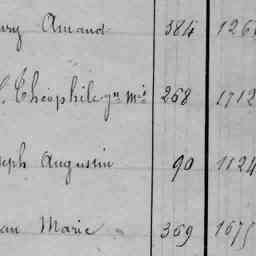 Amand 384 126
Théophile 268 1712
eph Augustin 90 1124
an Marie 369 1675